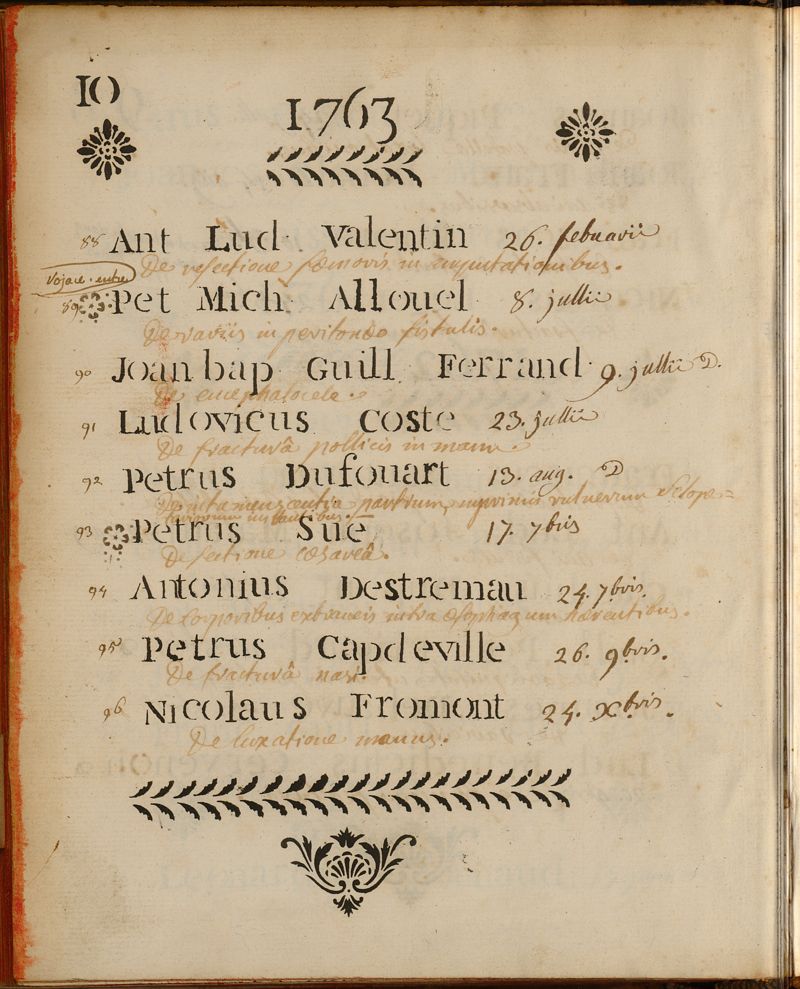 10
1763
88 Ant Lud Valentin 26. febuarii
De resectione femoris in amputationibus.
Vojace. entre
89 Pet Mich Allouel 8. jullii
De variis in peritonæo fistulis.
90 Joan bap Guill Ferrand 9. jullii D.
De encephalocele.
91 Ludovicus Coste 23. jullii
De fracturâ pollicis in manu.
92 Petrus Dufouart 13. aug. D
De partium vulnerum Sclope=
93 Petrus Süe 17. 7bris
De sectione cæsareâ.
94 Antonius Destremau 24. 7bris.
De Corporibus extraneis intra æsophagum hærentibus.
95 Petrus Capdeville 26. 9bris.
De fracturâ nasi.
96 Nicolaus Fromont 24. Xbris.
De luxatione manus.